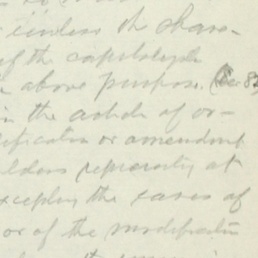 unless the share-
of the capital
above purpose. (Sec 8
in the article of or-
ification or amendment
holders representing at
excepting the cases of
or of the modification